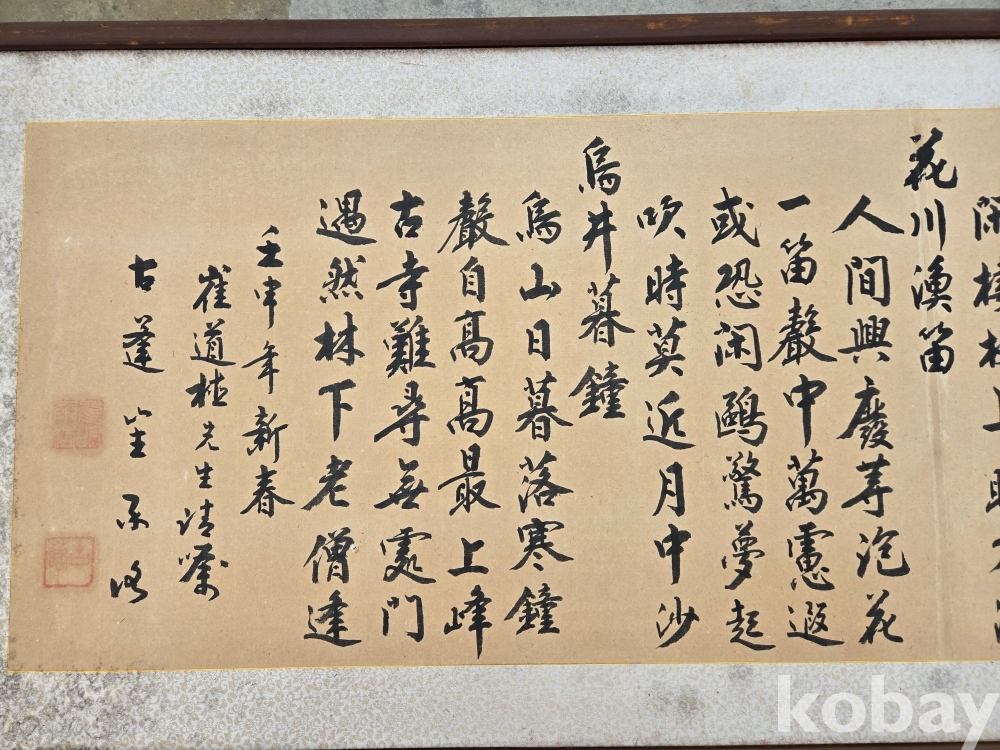 花川漁笛
人間興廢等泡花
一笛聲中萬慮遐
或恐闲鷗驚夢起
吹時莫近月中沙
烏井暮鐘
烏山日暮落寒鐘
聲自高高最上峰
古寺難尋無處門
遇然林下老僧逢
壬申年新春
崔道植先生清囑
古蓬
kobay